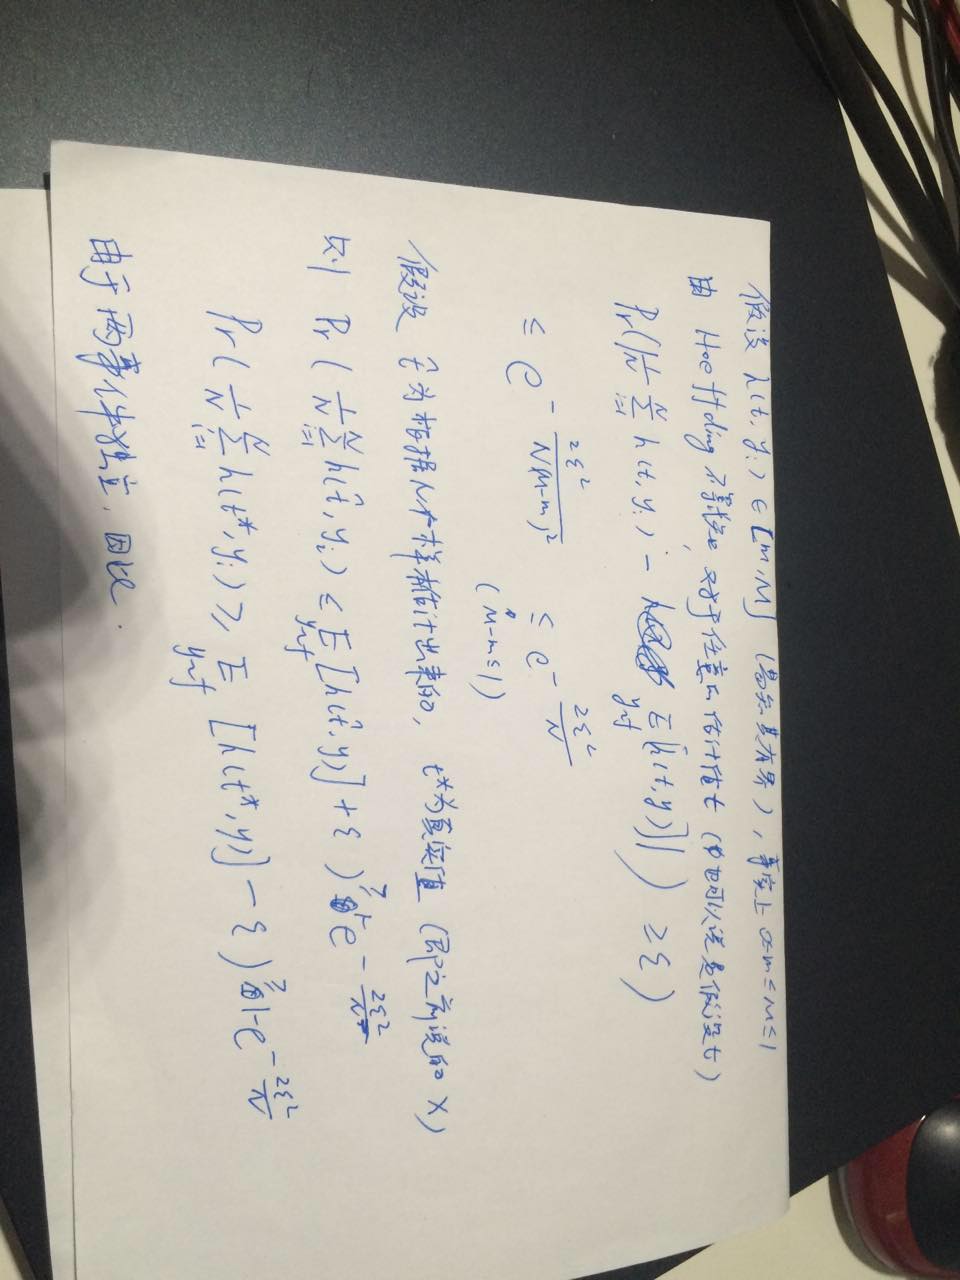 假设 h(t, y_i) ∈ [m, M] (易知其有界), 事实上 0≤m≤M≤1
由 Hoeffding 不等式知 对于任意的估计值 t (也可以说是假设t)
Pr(|1/N Σ_{i=1}^{N} h(t, y_i) - E_{y~f}[h(t,y)]|) ≥ ε)
≤ e^{- 2ε²/(N(M-m)²)} ≤ e^{- 2ε²/N}
(M-m≤1)
假设 t̂ 为根据N个样本估计出来的, t*为真实值 (即之前说的 X)
则 Pr( 1/N Σ_{i=1}^{N} h(t̂, y_i) ≤ E_{y~f} [h(t̂, y)] + ε ) ≥ 1-e^{- 2ε²/N}
Pr( 1/N Σ_{i=1}^{N} h(t*, y_i) ≥ E_{y~f} [h(t*, y)] - ε ) ≥ 1-e^{- 2ε²/N}
由于两事件独立, 因此.